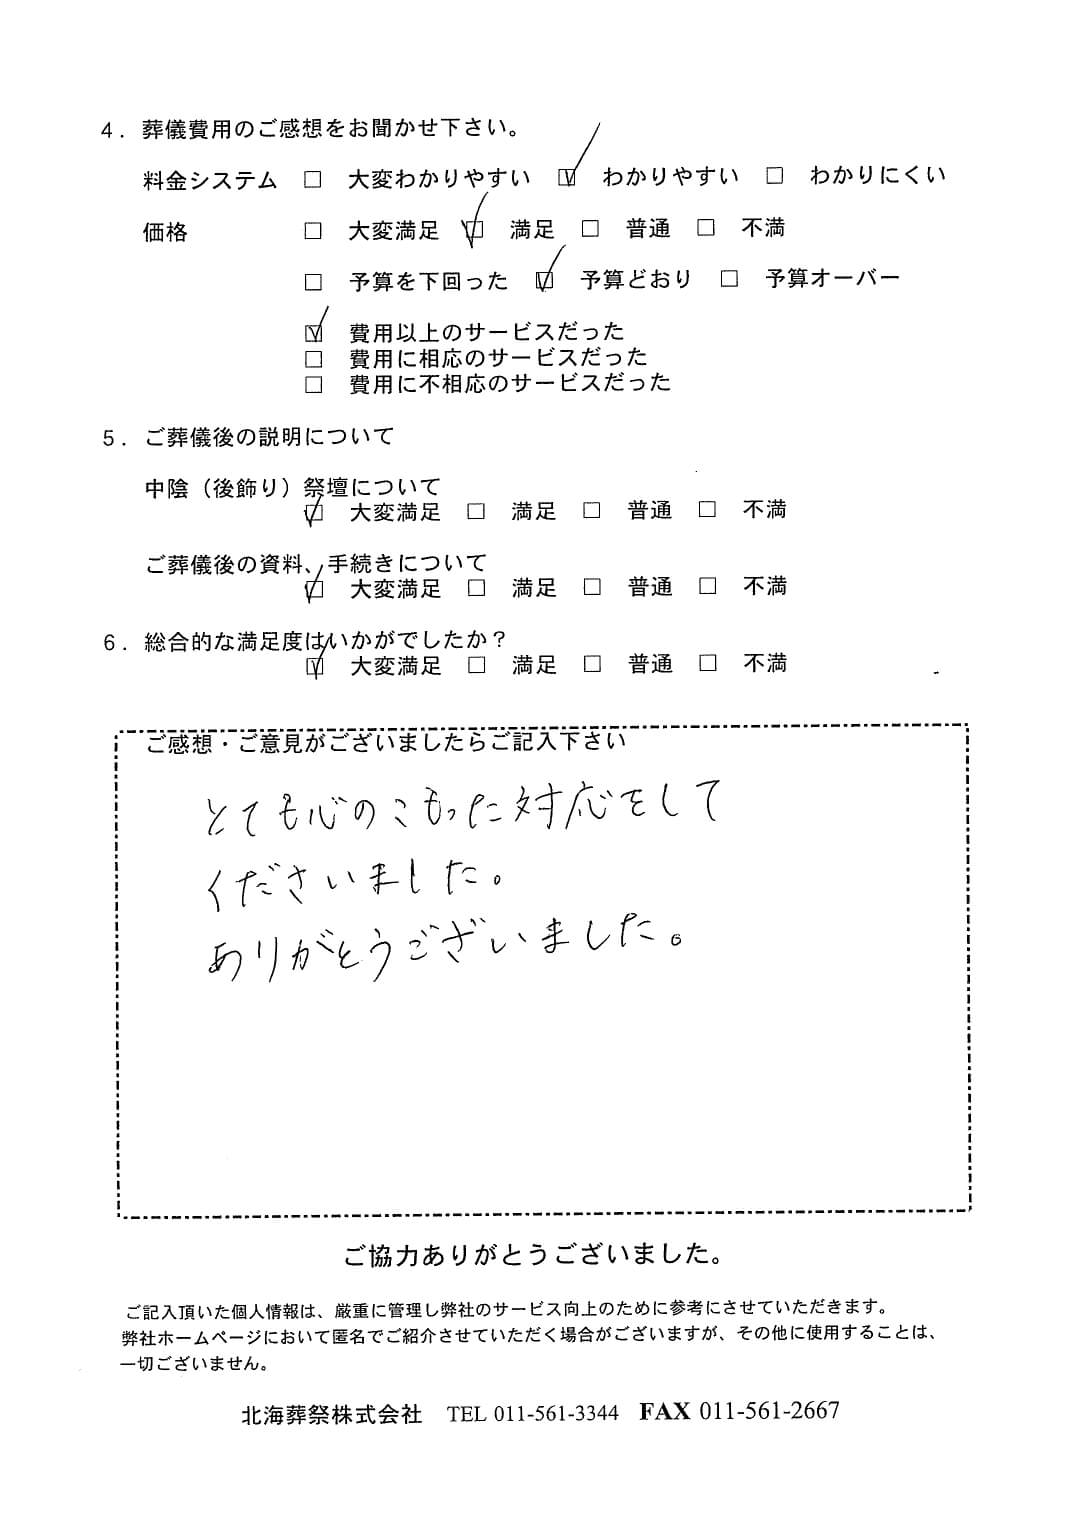 4．葬儀費用のご感想をお聞かせ下さい。
料金システム □ 大変わかりやすい ☑ わかりやすい □ わかりにくい
価格 □ 大変満足 ☑ 満足 □ 普通 □ 不満
□ 予算を下回った ☑ 予算どおり □ 予算オーバー
☑ 費用以上のサービスだった
□ 費用に相応のサービスだった
□ 費用に不相応のサービスだった
5．ご葬儀後の説明について
中陰（後飾り）祭壇について
☑ 大変満足 □ 満足 □ 普通 □ 不満
ご葬儀後の資料、手続きについて
☑ 大変満足 □ 満足 □ 普通 □ 不満
6．総合的な満足度はいかがでしたか？
☑ 大変満足 □ 満足 □ 普通 □ 不満
ご感想・ご意見がございましたらご記入下さい
とても心のこもった対応をして
くださいました。
ありがとうございました。
ご協力ありがとうございました。
ご記入頂いた個人情報は、厳重に管理し弊社のサービス向上のために参考にさせていただきます。
弊社ホームページにおいて匿名でご紹介させていただく場合がございますが、その他に使用することは、
一切ございません。
北海葬祭株式会社 TEL 011-561-3344 FAX 011-561-2667